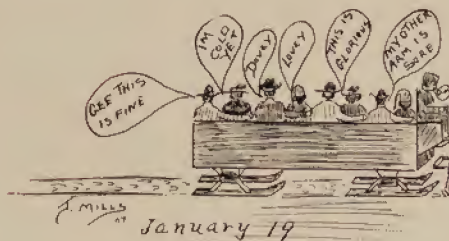 GEE THIS
IS FINE
IM
COLD
YET
Dovey
Lovey
THIS IS
GLORIOUS
MY OTHER
ARM IS
SORE
J. MILLS
09
January 19